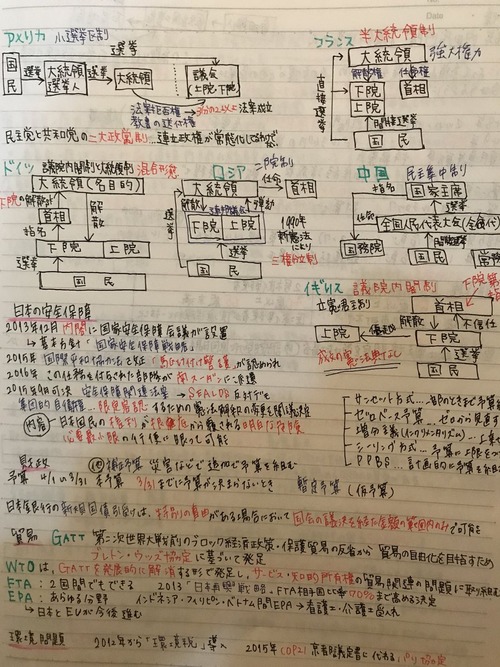 アメリカ 小選挙区制
選挙
国民 選挙 大統領選挙人 選挙 大統領 議会(上院・下院)
法案拒否権 → 3分の2以上 法案成立
教書の送付権
民主党と共和党の二大政党制
フランス 半大統領制
大統領 強大権力
解散権 任命権
直接選挙
下院 首相
上院
間接選挙
国民
ドイツ 議院内閣制+大統領制 混合形態
大統領(名目的)
下院の解散
首相 解散
指名
下院 上院
選挙
国民
ロシア 二院制
大統領 任命 首相
解散 弾劾
連邦議会
下院 上院
選挙 選挙
国民
三権分立制
中国 民主集中制
指名 国家主席
任命
全国人民代表大会(全人代)
国務院 間接選挙
国民
イギリス 議院内閣制
立憲君主制 首相
解散 不信任
上院 優越 下院
選挙
国民
成文の憲法典なし
日本の安全保障
2013年12月 内閣に国家安全保障会議が設置
→ 基本方針「国家安全保障戦略」
2015年 国際平和協力法を改正「駆け付け警護」が認められ
2016年 この任務を付与された部隊が南スーダンに派遣
2015年9月可決 安全保障関連法案 → SEALDs 反対デモ
集団的自衛権…限定容認するための憲法解釈の変更を閣議決定
内容 日本国民の権利が根底から覆される明白な危険
必要最小限の行使に限って可能
サンセット方式
ゼロベース予算…ゼロから見直す
増分主義(インクリメンタリズム)
シーリング方式…予算に上限をつ
PPBS…計画的に予算を組
財政 補正予算 災害などで追加で予算を組む
予算 4/1から3/31 本予算 3/31までに予算が決まらないとき 暫定予算(仮予算)
日本銀行の新規国債引受けは、特別の事由がある場合において国会の議決を経た金額の範囲内のみで可能
貿易 GATT 第二次世界大戦前のブロック経済政策・保護貿易の反省から 貿易の自由化を目指すため
ブレトン・ウッズ協定に基づいて発足
WTOは、GATTを発展的に解消する形で発足し、サービス・知的所有権の貿易関連の問題に取り組む
FTA:2国間でもできる 2013「日本再興戦略」FTA相手国比率70%まで高める決定
EPA:あらゆる分野 インドネシア・フィリピン・ベトナム間EPA→看護士・介護士受入れ
→日本とEUが今後進む
環境問題 2012年から「環境税」導入 2015年(COP21)京都議定書に代わるパリ協定